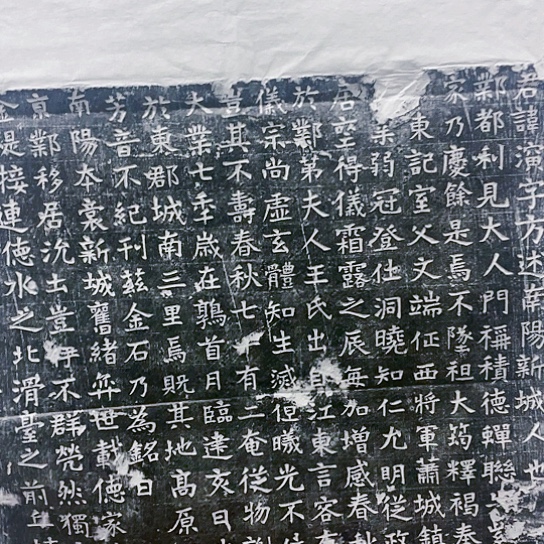 君諱演字方述南陽新城人也
鄴都利見大人門稱積德蟬聯
家乃慶餘是焉不墜祖大筠釋褐奉
東記室父文端征西將軍蕭城鎮
弱冠登仕洞曉知仁允明從政
居堂得儀霜露之辰每加增感春秋
於鄴第夫人王氏出自江東言容
儀宗尚虛玄體知生滅但曦光不
豈其不壽春秋七十有二奄從物
大業七年歲在鶉首月臨建亥日
於東郡城南三里焉既其地高原
芳音不紀刊茲金石乃為銘曰
南陽本袁新城舊緒弈世載德家
京鄴移居沇土豈乎不群煢然獨
金堤接連德水之北滑臺之前丘